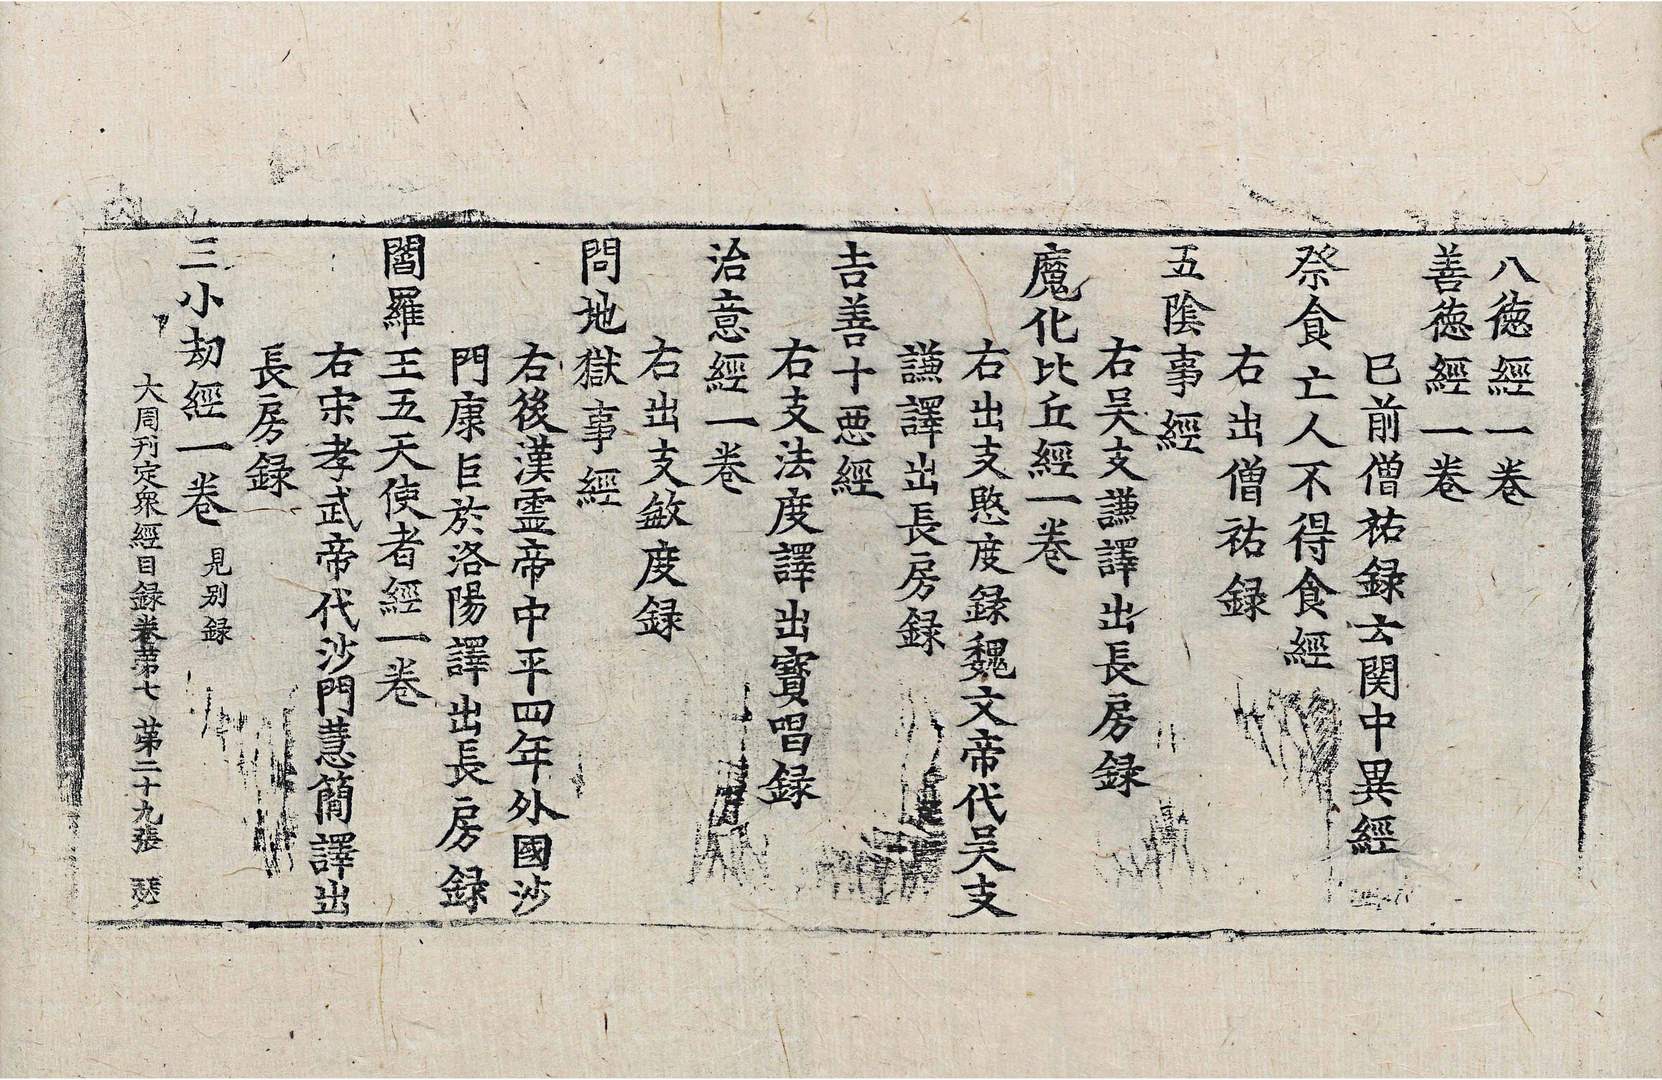 八徳經一卷
善徳經一卷
巳前僧祐録云関中異經
祭食亡人不得食經
右出僧祐録
五隂事經
右吴支謙譯出長房録
魔化比丘經一卷
右出支愍度録魏文帝代吴支
謙譯出長房録
吉善十悪經
右支法度譯出寳唱録
治意經一卷
右出支敏度録
問地獄事經
右後漢霊帝中平四年外國沙
門康巨於洛陽譯出長房録
閻羅王五天使者經一卷
右宋孝武帝代沙門慧簡譯出
長房録
三小劫經一卷 見別録
大周刊定衆經目録卷苐七 苐二十九張 瑟